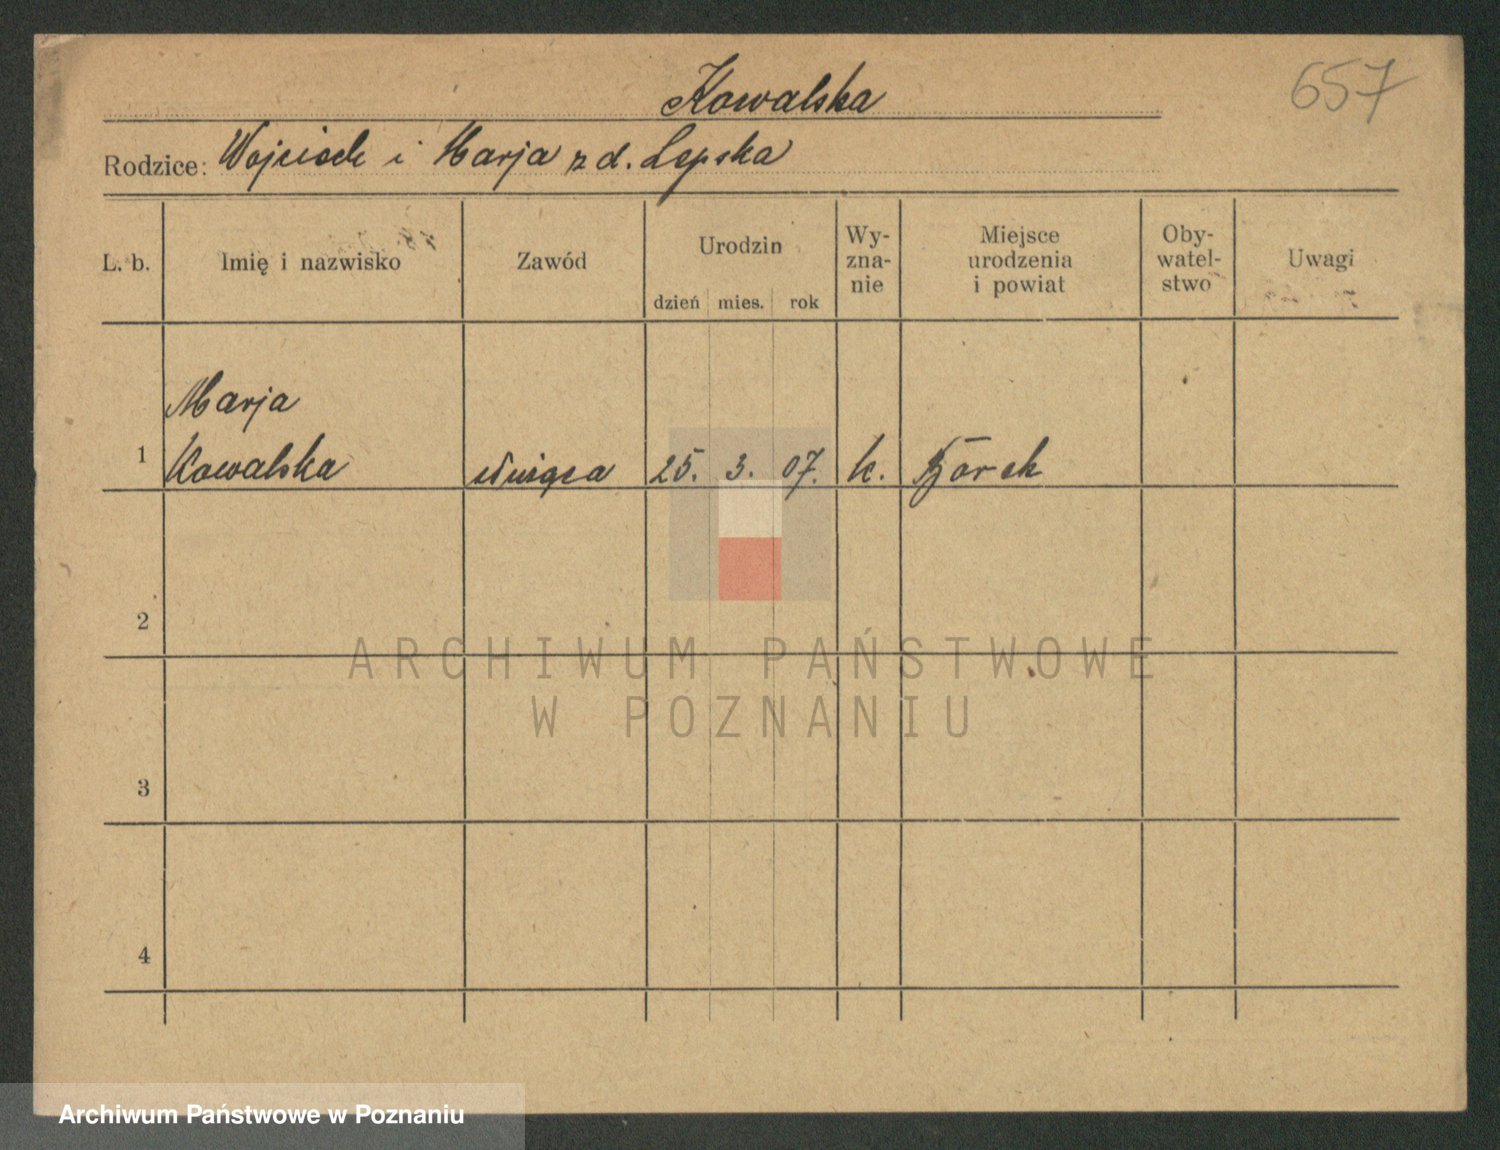 Kowalska
657
Rodzice: Wojciech i Marja z d. Lepska
L. b.
Imię i nazwisko
Zawód
Urodzin
dzień mies. rok
Wy-
zna-
nie
Miejsce
urodzenia
i powiat
Oby-
watel-
stwo
Uwagi
Marja
1 Kowalska służąca 25. 3. 07. k. Borek
2
ARCHIWUM PAŃSTWOWE
W POZNANIU
3
4
Archiwum Państwowe w Poznaniu